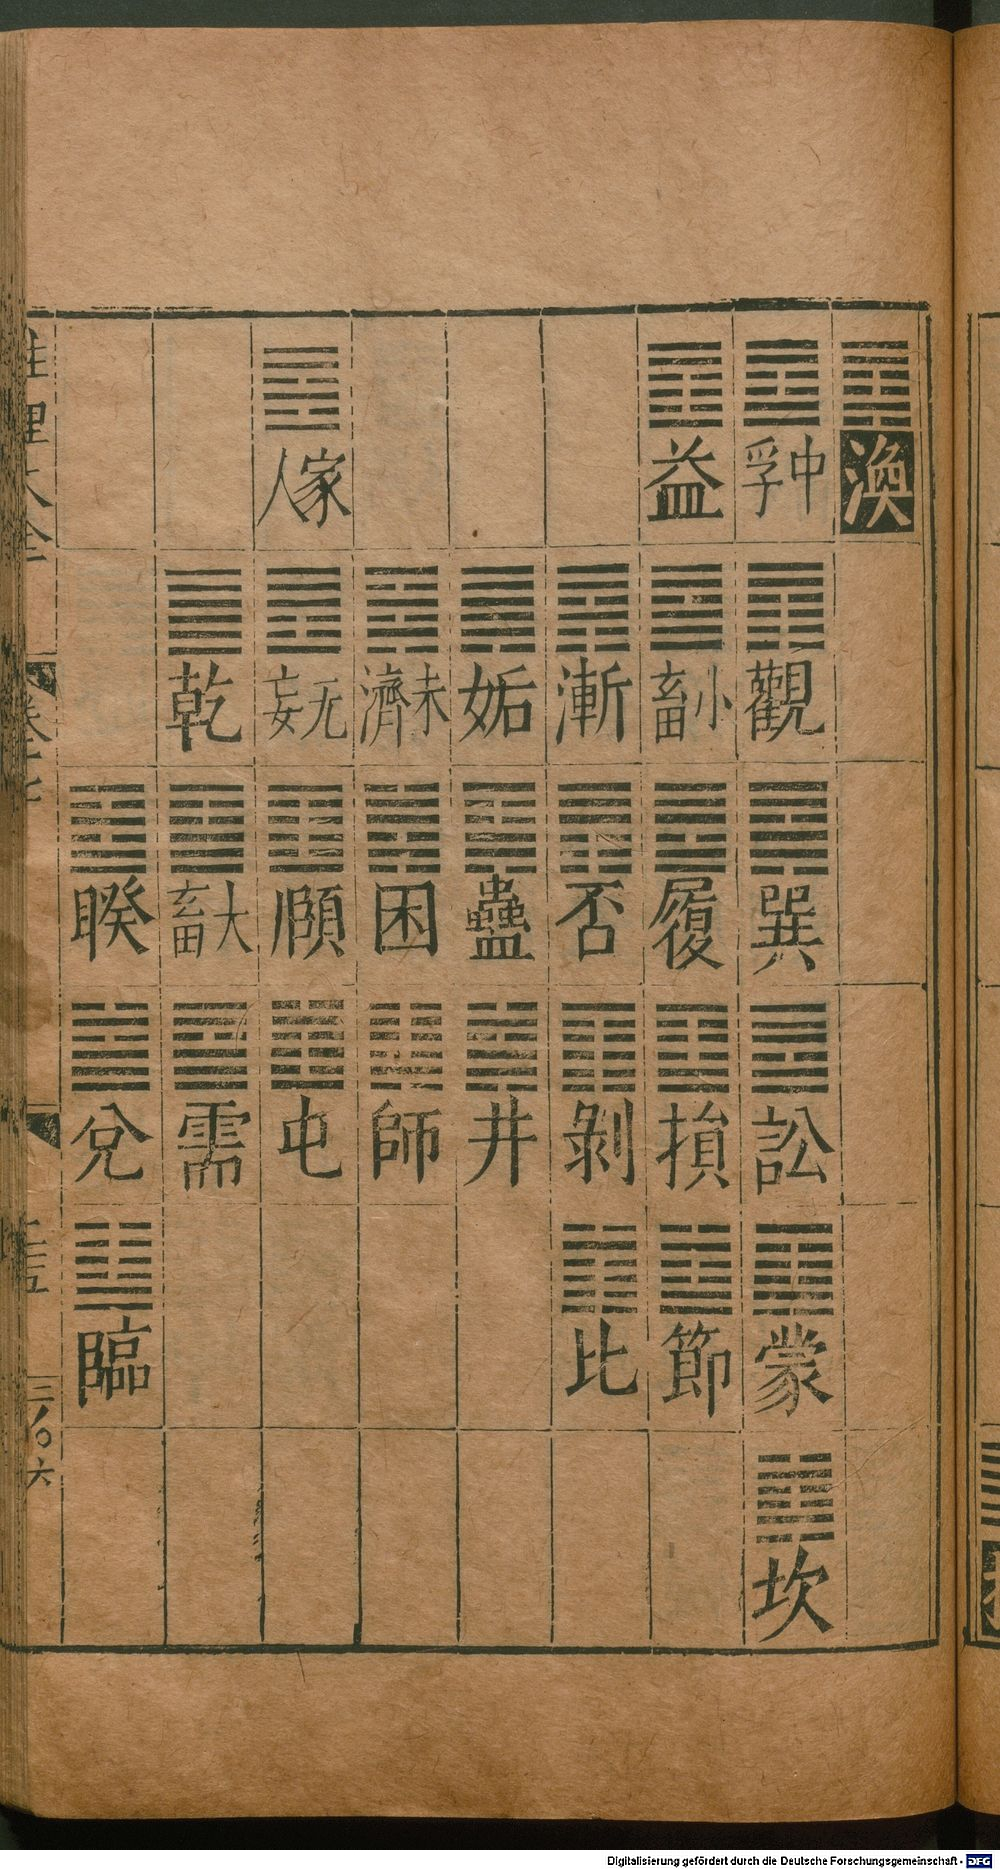 渙
中孚
觀
巽
訟
蒙
坎
益
小畜
履
損
節
漸
否
剝
比
姤
蠱
井
未濟
困
師
家人
无妄
頤
屯
乾
大畜
需
睽
兌
臨
性理大全
二八〇六
Digitalisierung gefördert durch die Deutsche Forschungsgemeinschaft - DFG